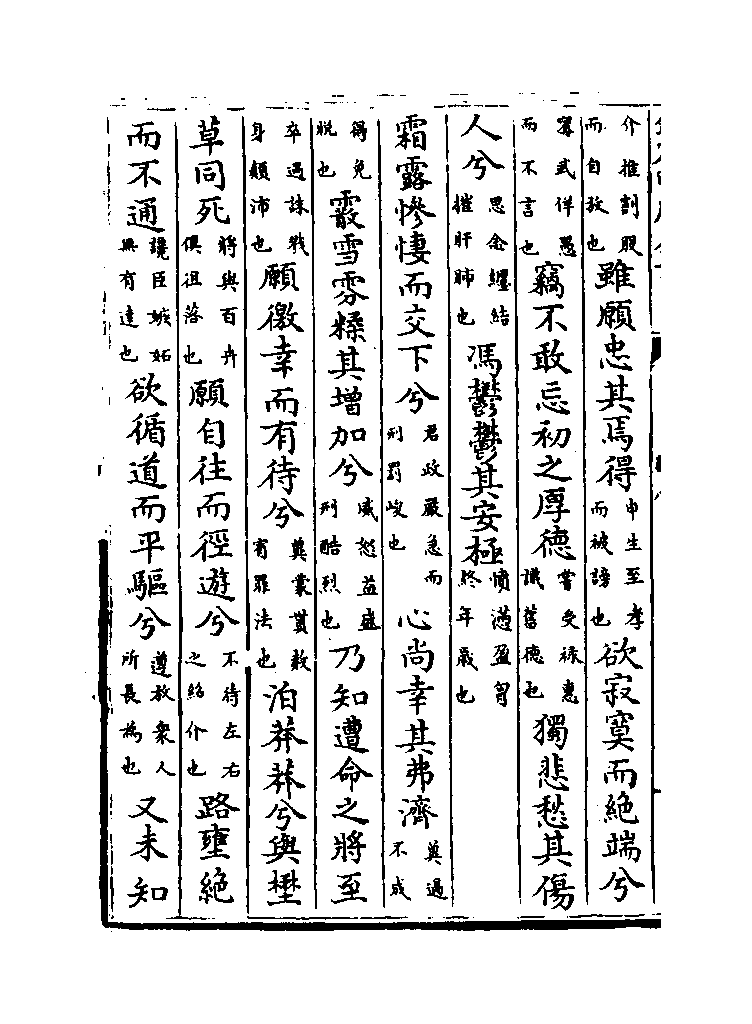 介推割股而自放也雖願忠其焉得申生至孝而被謗也欲寂寞而絶端兮
甯武佯愚而不言也竊不敢忘初之厚德嘗受禄惠識舊德也獨悲愁其傷
人兮思念纒結摧肝肺也馮鬱鬱其安極憤懣盈胷終年歲也
霜露慘悽而交下兮君政嚴急而刑罰峻也心尚幸其弗濟冀過不成
得免脱也霰雪雰糅其增加兮威怒益盛刑酷烈也乃知遭命之將至
卒遇誅戮身顛沛也願徼幸而有待兮冀蒙貰赦宥罪法也泊莽莽兮與壄
草同死將與百卉俱徂落也願自往而徑遊兮不待左右之紹介也路壅絶
而不通讒臣嫉妬無有達也欲循道而平驅兮遵放衆人所長為也又未知